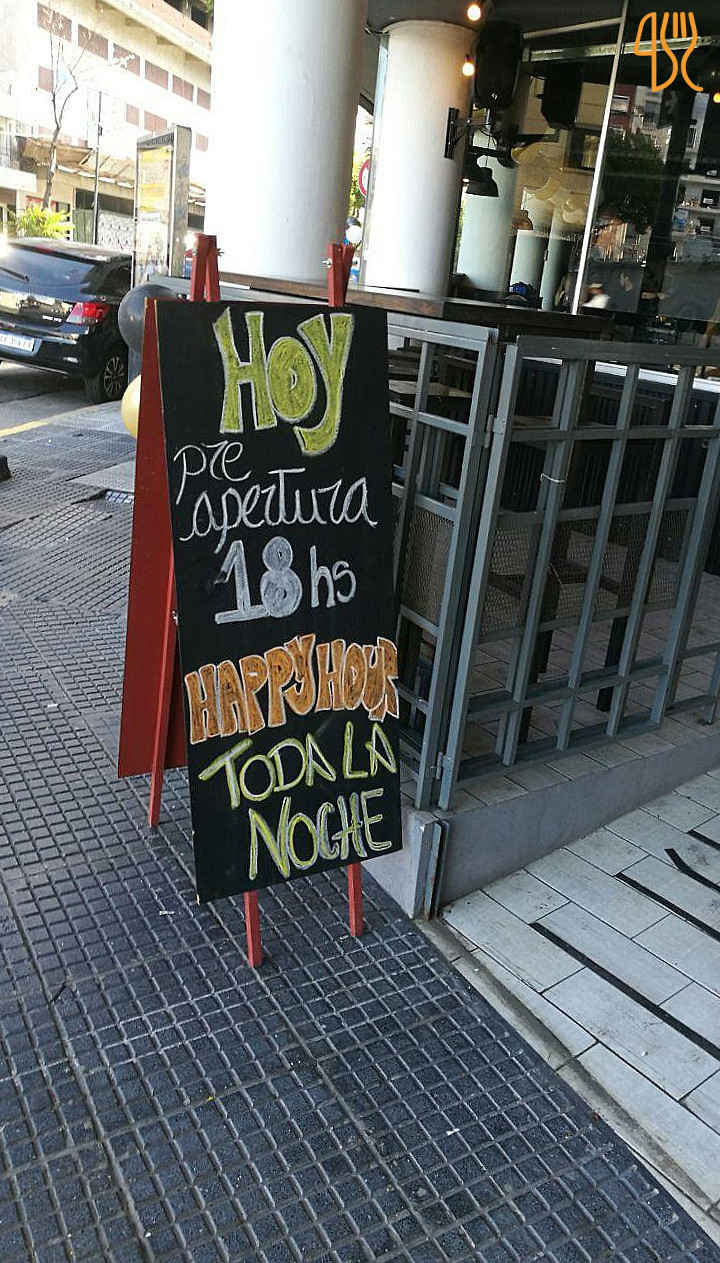 HOY
pre
apertura
18 hs
HAPPY HOUR
TODA LA
NOCHE